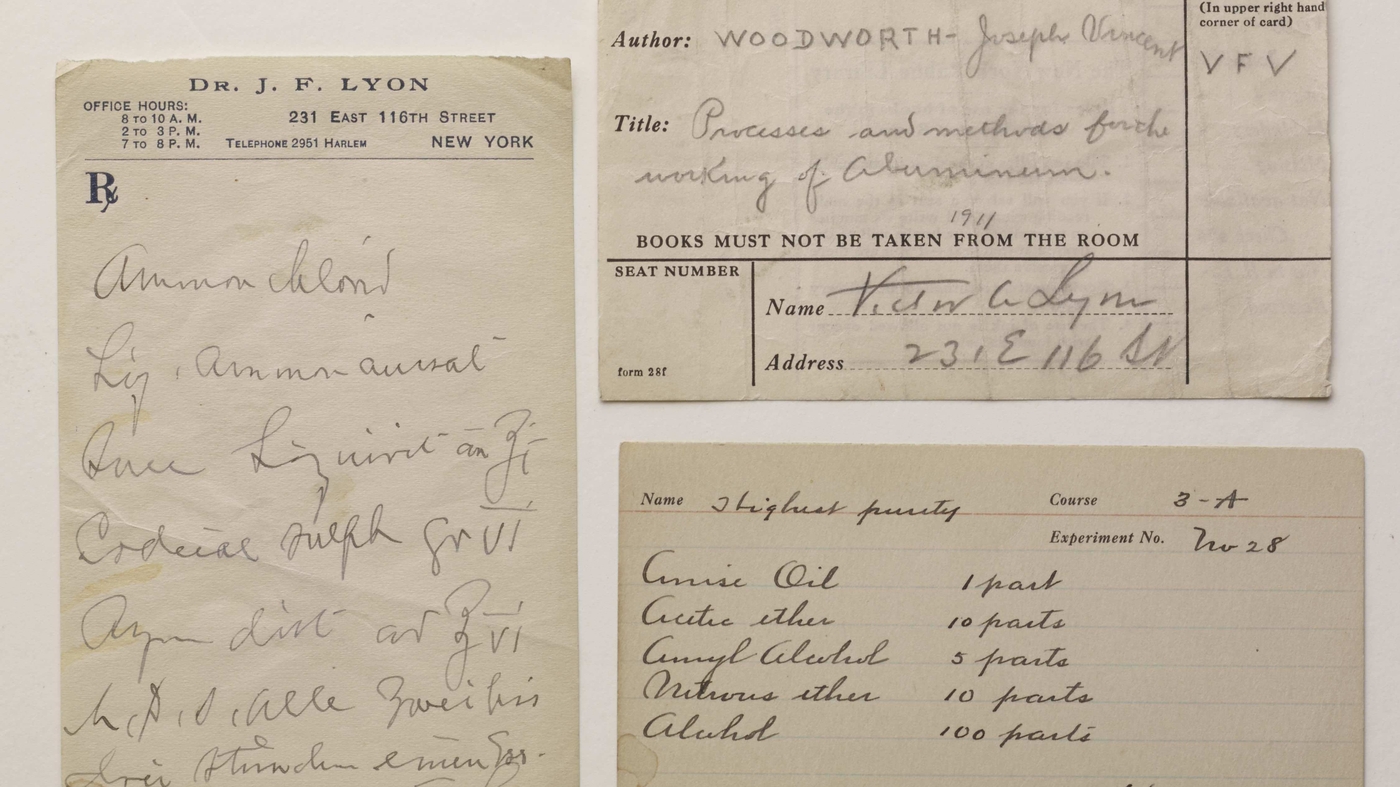 DR. J. F. LYON
OFFICE HOURS:
8 TO 10 A. M.
2 TO 3 P. M.
7 TO 8 P. M.
231 EAST 116TH STREET
TELEPHONE 2951 HARLEM
NEW YORK
℞
Ammon chlorid
Liq. Ammon anisat
Succ Liquirit aa ℥i
Codeiae sulph gr VI
Aqua dist ad ℥ VI
M. D. S. Alle zwei bis
drei Stunden einen Ess-
Author: WOODWORTH- Joseph Vincent
(In upper right hand
corner of card)
VFV
Title: Processes and methods for the
working of Alumineum.
1911
BOOKS MUST NOT BE TAKEN FROM THE ROOM
SEAT NUMBER
form 28f
Name Victor A Lyon
Address 231 E 116 St
Name Highest purity
Course 3-A
Experiment No. No 28
Anise Oil 1 part
Acetic ether 10 parts
Amyl Alcohol 5 parts
Nitrous ether 10 parts
Alcohol 100 parts